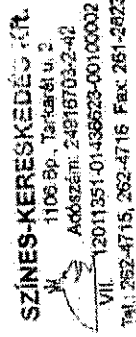 SZÍNES-KERESKEDÉS Kft.
1106 Bp., Tarkarét u. 2.
Adószám: 24916703-2-42
VII.
12011351-01438623-00100002
Tel.: 262-4715, 262-4716 Fax: 261-2823